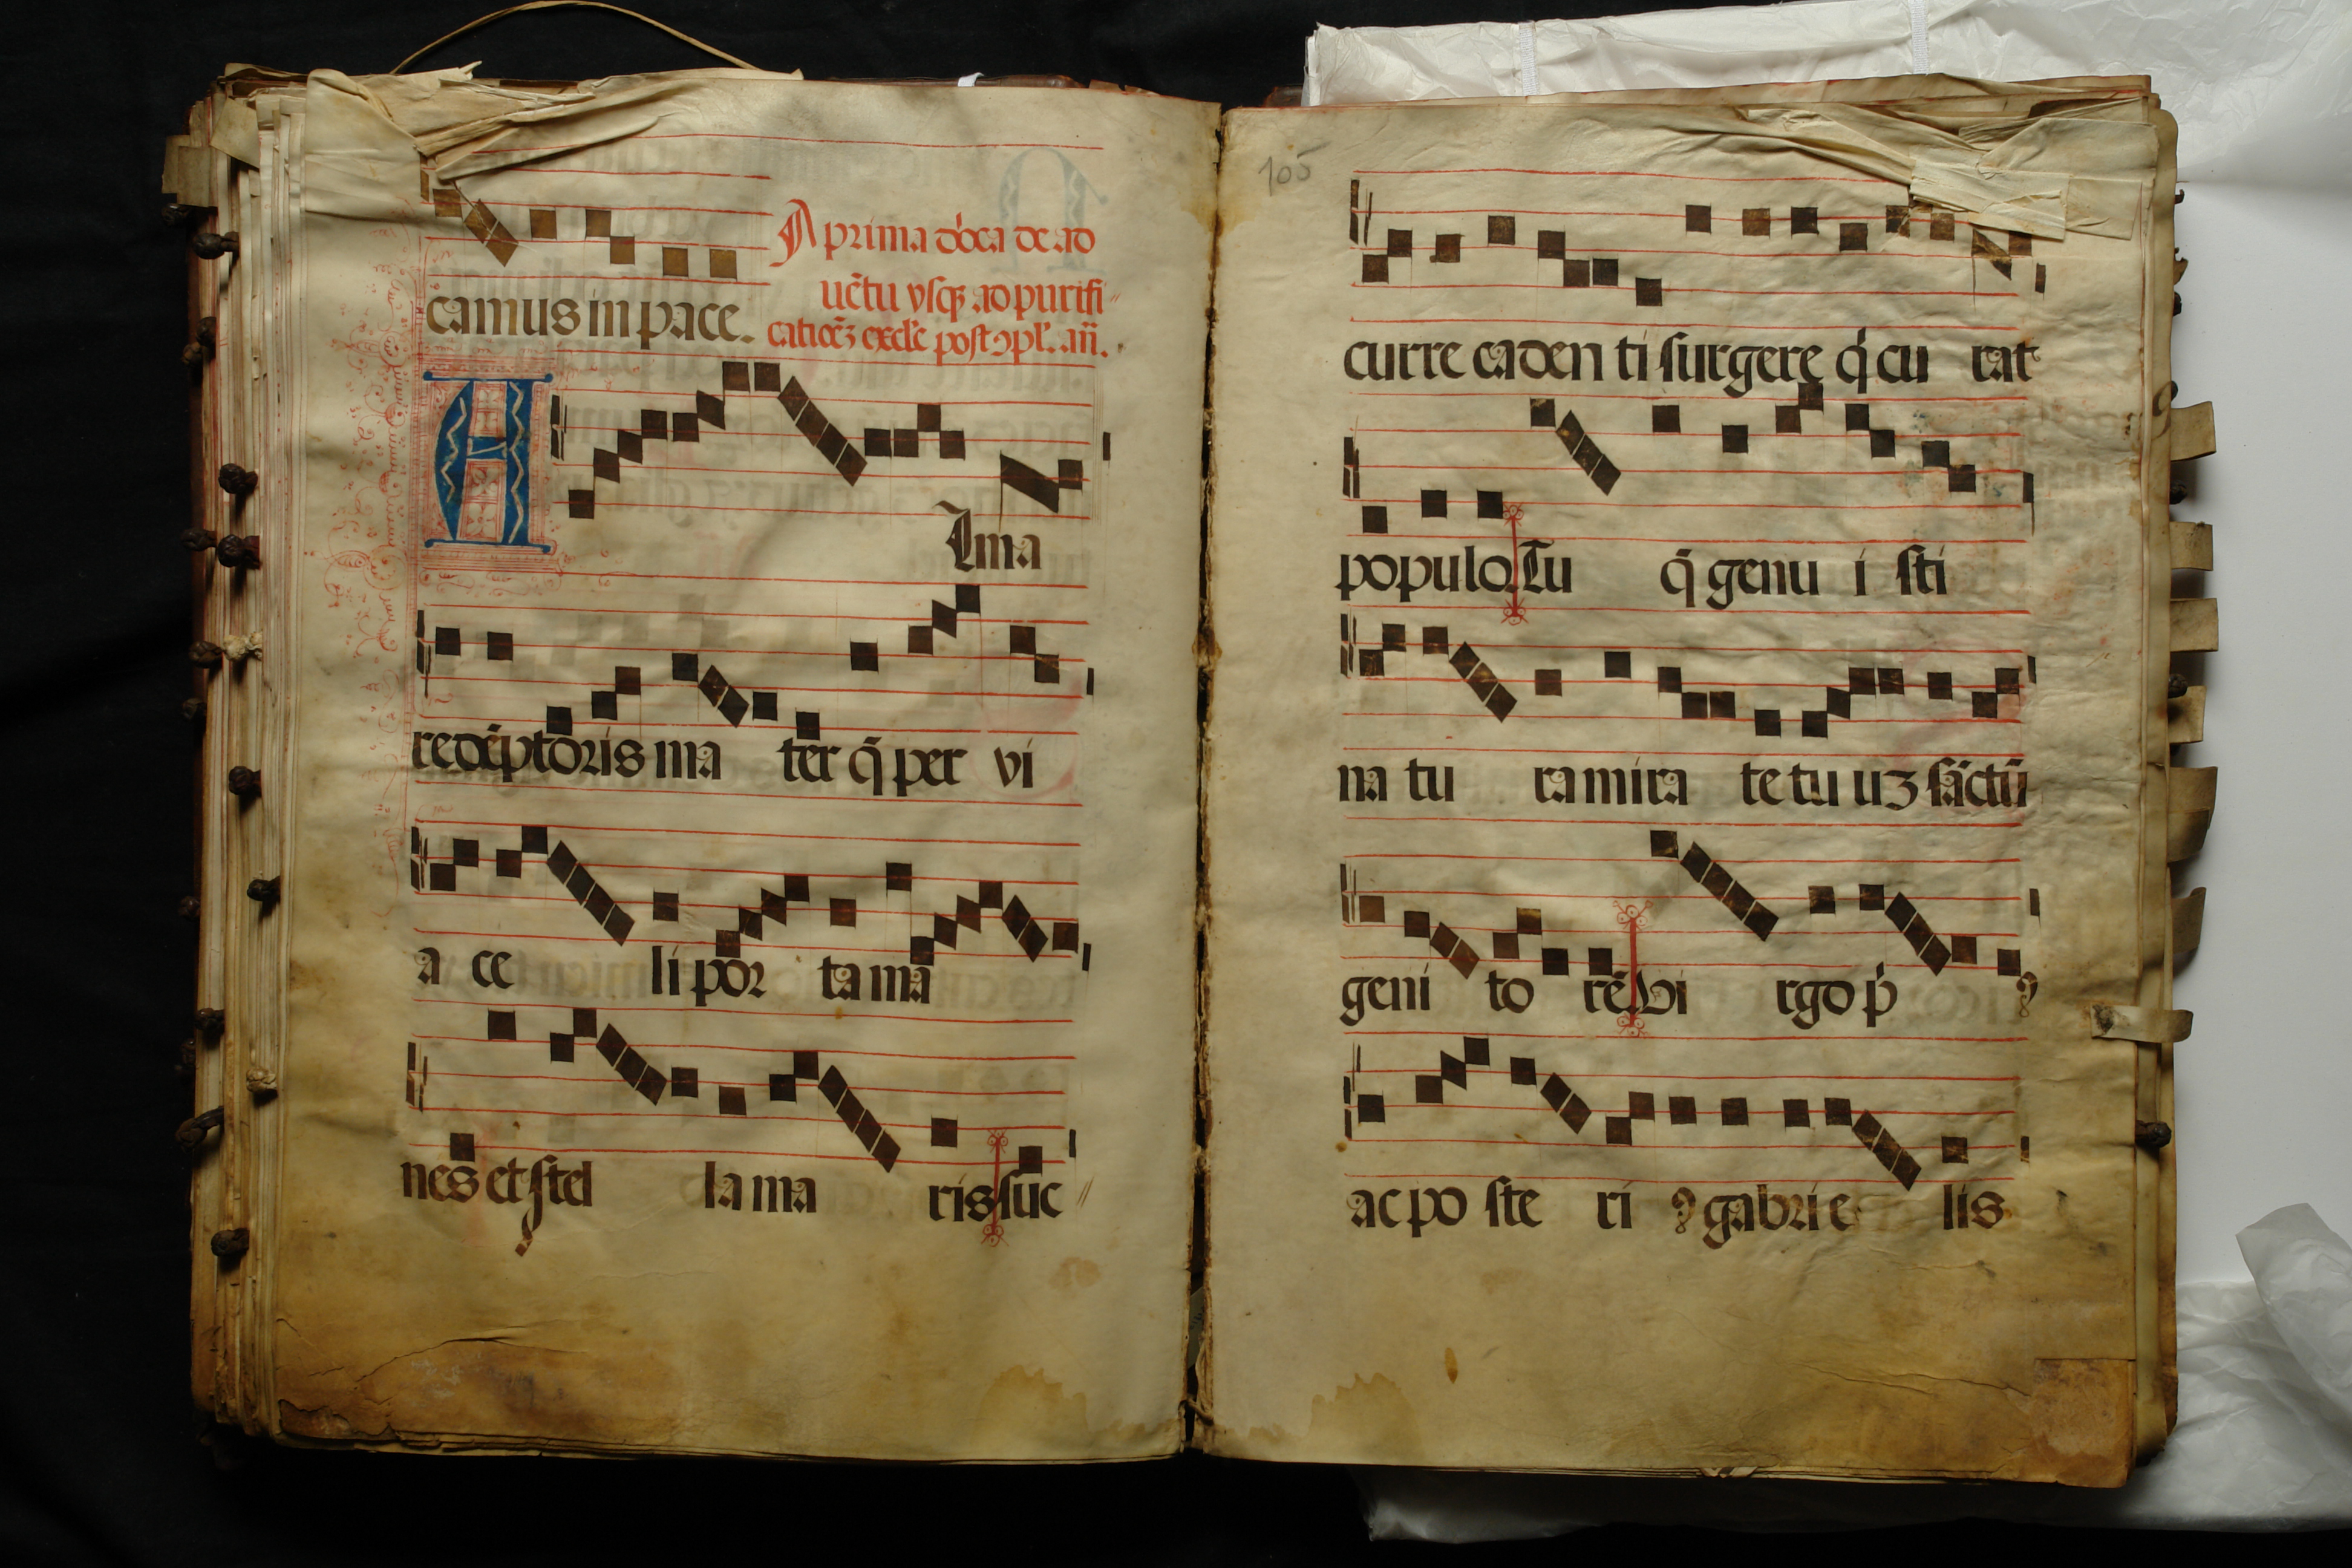 camus in pace.
A prima dd̄ca de ad
uētu vsqꝫ ad purifi
catiōēꝫ excłe post ↄpł. an̄.
Alma
redēptoris ma ter q̄ per vi
a ce li por ta ma
nes et stel la ma ris suc
105
curre caden ti surgere q̇ cu rat
populo Tu q̄ genu i sti
na tu ra mira te tu uꝫ sāctū
geni to rē Vi rgo p̍ ꝯ
ac po ste ri ꝯ gabri e lis